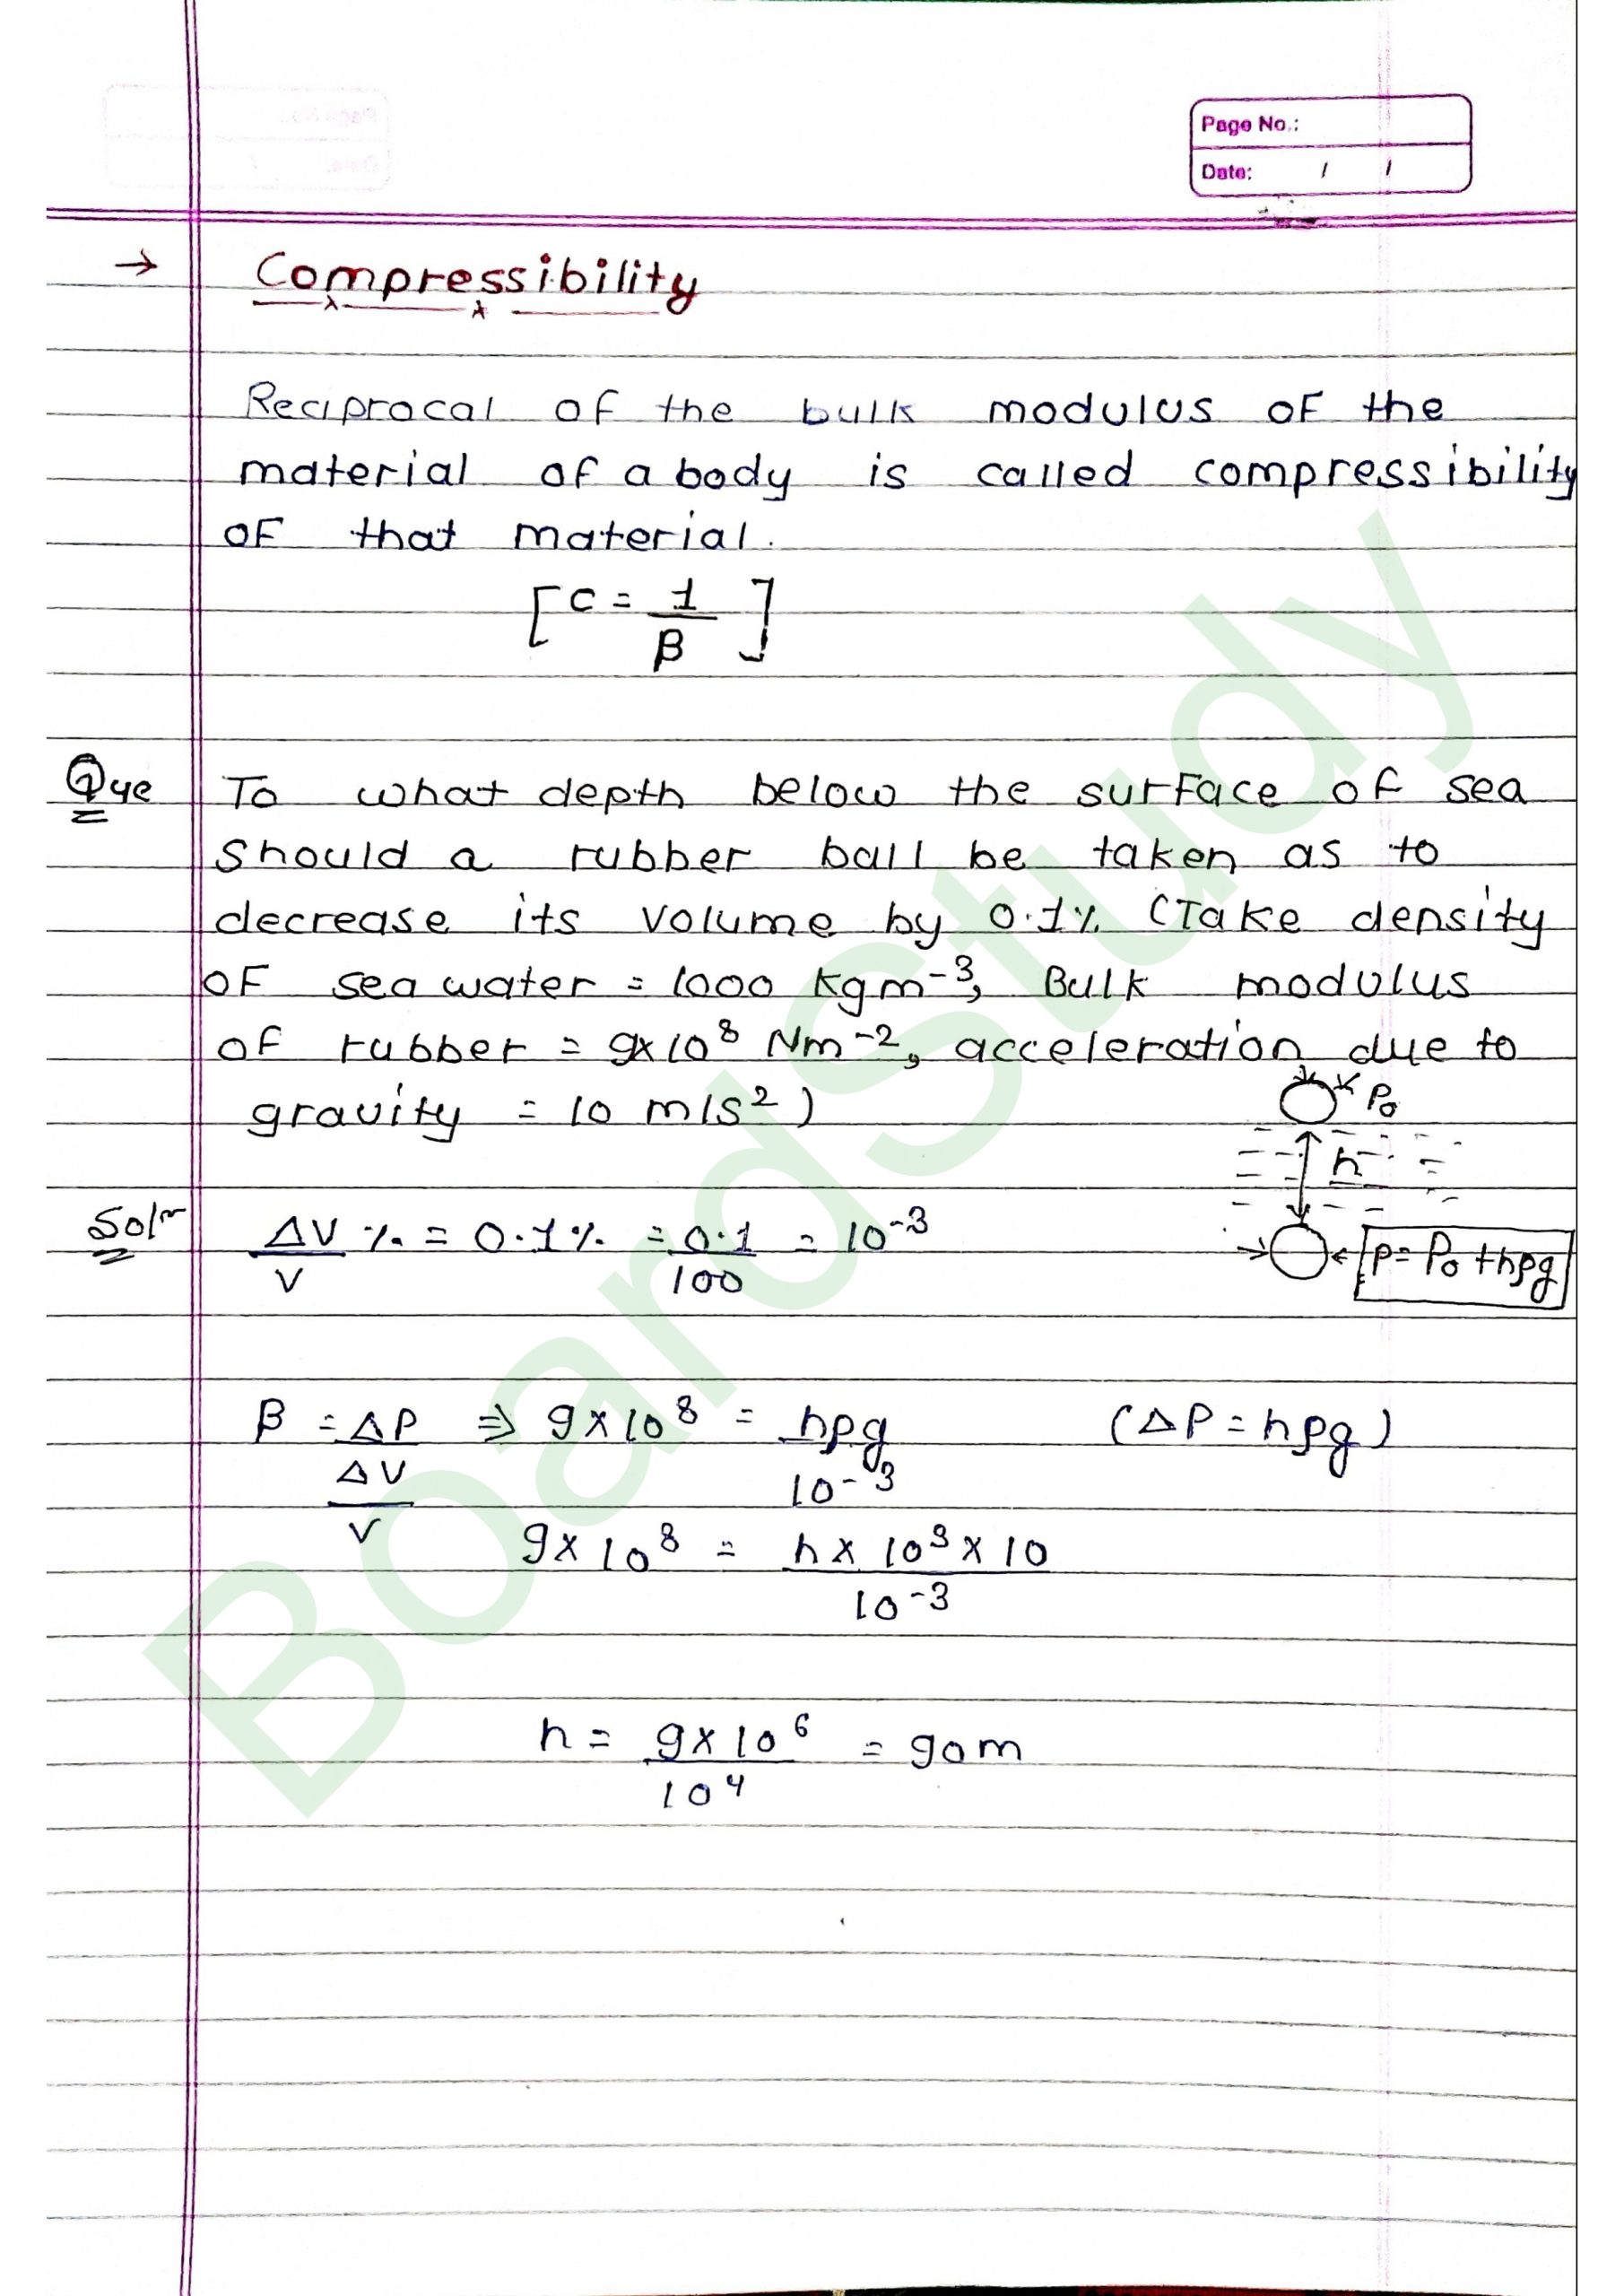 Page No.:
Date: / /
→ Compressibility
Reciprocal of the bulk modulus of the
material of a body is called compressibility
of that material.
[C = 1/β]
Que To what depth below the surface of sea
should a rubber ball be taken as to
decrease its volume by 0.1% (Take density
of sea water = 1000 kgm⁻³, Bulk modulus
of rubber = 9×10⁸ Nm⁻², acceleration due to
gravity = 10 m/s²)
P₀
h
P = P₀ + hρg
Solⁿ ΔV/V % = 0.1% = 0.1/100 = 10⁻³
β = ΔP/(ΔV/V) ⇒ 9×10⁸ = hρg/10⁻³ (ΔP = hρg)
9×10⁸ = h×10³×10/10⁻³
h = 9×10⁶/10⁴ = 90m
BoardStudy